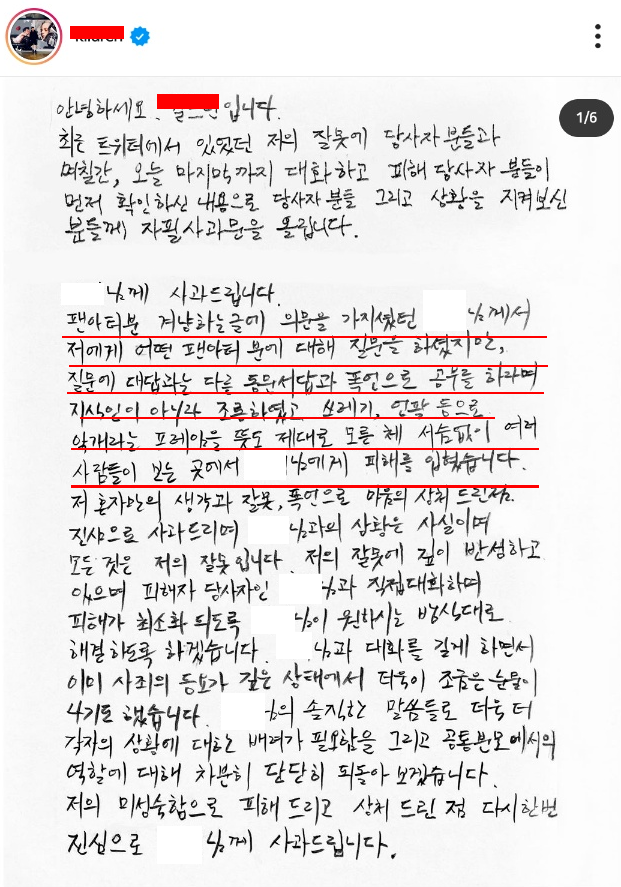 1/6
안녕하세요. 입니다.
최근 트위터에서 있었던 저의 잘못에 당사자분들과
며칠간, 오늘 마지막까지 대화하고 피해 당사자 분들이
먼저 확인하신 내용으로 당사자 분들 그리고 상황을 지켜보신
분들께 자필사과문을 올립니다.
님께 사과드립니다.
팬아터분 겨냥하는글에 의문을 가지셨던 님께서
저에게 어떤 팬아터 분에 대해 질문을 하셨지만,
질문에 대답과는 다른 동문서답과 폭언으로 공부를 하라며
지식인이 아니라 조롱하였고 쓰레기, 언팔 등으로
악개라는 프레임을 뜻도 제대로 모른 체 서슴없이 여러
사람들이 보는 곳에서 님에게 피해를 입혔습니다.
저 혼자만의 생각과 잘못, 폭언으로 마음의 상처 드린점
진심으로 사과드리며 님과의 상황은 사실이며
모든 것은 저의 잘못입니다. 저의 잘못에 깊이 반성하고
있으며 피해자 당사자인 님과 직접대화하며
피해가 최소화 되도록 님이 원하시는 방식대로
해결하도록 하겠습니다. 님과 대화를 길게 하면서
이미 사죄의 동요가 깊은 상태에서 더욱이 조금은 눈물이
나기도 했습니다. 님의 솔직한 말씀들로 더욱 더
각자의 상황에 대한 배려가 필요함을 그리고 공통분모에서의
역할에 대해 차분히 단단히 되돌아 보겠습니다.
저의 미성숙함으로 피해 드리고 상처 드린 점 다시한번
진심으로 님께 사과드립니다.